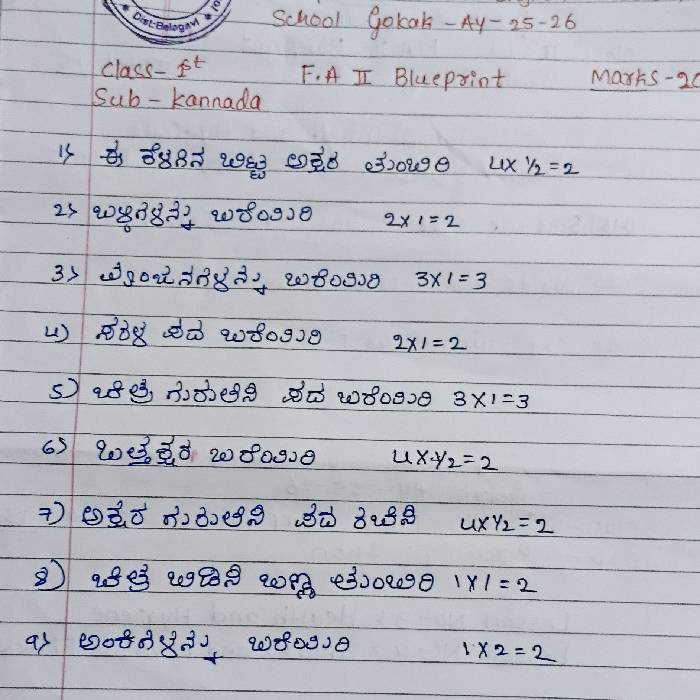 Dist-Belagavi
School Gokak - AY - 25-26
Class - 1st F.A II Blueprint Marks - 20
Sub - Kannada
1) ಈ ಕೆಳಗಿನ ಬಿಟ್ಟ ಅಕ್ಷರ ತುಂಬಿರಿ 4x ½ = 2
2) ಬಳ್ಳಿಗಳನ್ನು ಬರೆಯಿರಿ 2x1=2
3) ವ್ಯಂಜನಗಳನ್ನು ಬರೆಯಿರಿ 3x1=3
4) ಸರಳ ಪದ ಬರೆಯಿರಿ 2x1=2
5) ಚಿತ್ರ ಗುರುತಿಸಿ ಪದ ಬರೆಯಿರಿ 3x1=3
6) ಒತ್ತಕ್ಷರ ಬರೆಯಿರಿ 4x½=2
7) ಅಕ್ಷರ ಗುರುತಿಸಿ ಪದ ರಚಿಸಿ 4x½=2
8) ಚಿತ್ರ ಬಿಡಿಸಿ ಬಣ್ಣ ತುಂಬಿರಿ 1x1=2
9) ಅಂಕಿಗಳನ್ನು ಬರೆಯಿರಿ 1x2=2